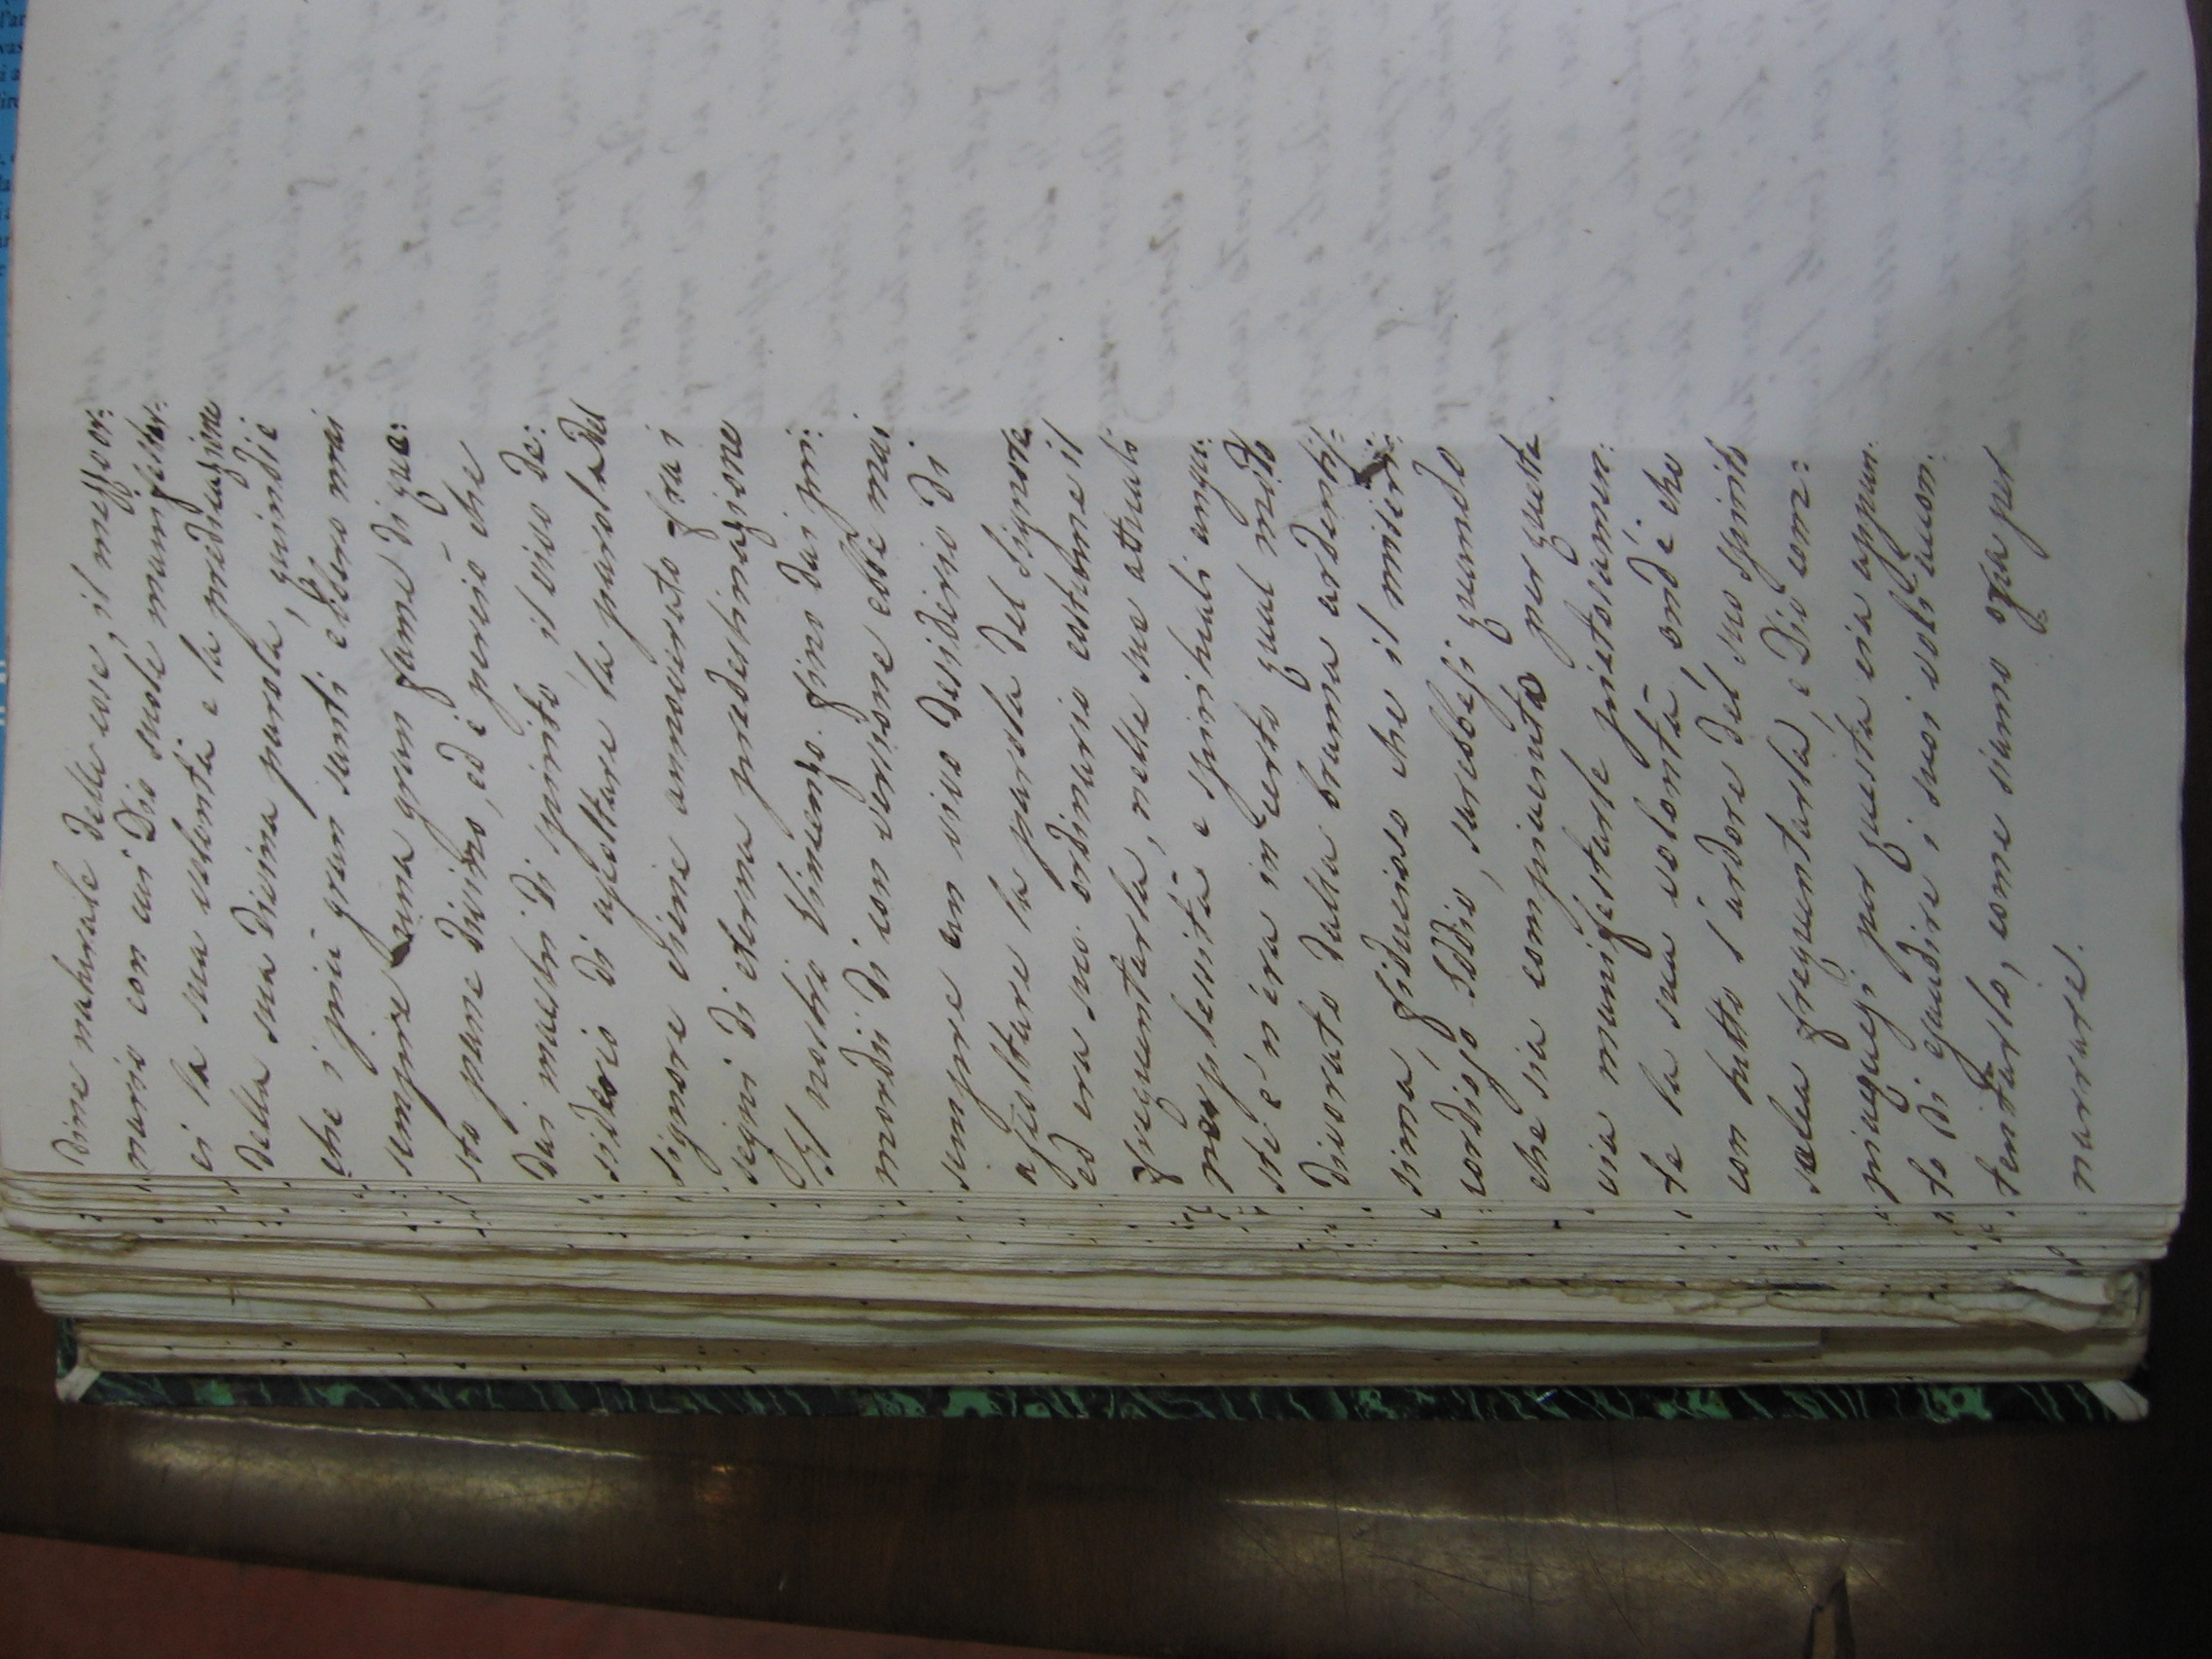 dine naturale delle cose, il mezzo or:
nario con cui Dio suole manifestar:
ci la sua volontà e la predicazione
della sua divina parola, quindi è
che i più gran santi ebbero mai
sempre una gran fame di que:
sto pane divino, ed è perciò che
dai maestri di spirito il vivo de:
siderio di ascoltare la parola del
signore viene annoverato fra i
segni di eterna predestinazione
Il nostro Vincenzo fino dai pri:
mordii di conversione ebbe mai
sempre un vivo desiderio di
ascoltare la parola del signore
ed era suo ordinario costume il
frequentarla, nelle sue attuali
perplessità e spirituali angu:
stie n'era in certo qual modo
divorato dalla brama ardentis:
sima, fiducioso che il miseri:
cordioso Iddio, sarebbesi quando
che sia compiaciuto per questa
via manifestarle pietosamen:
te la sua volontà, ond'è che
con tutto l'ardore del suo spirito
solea frequentarla, e Dio com:
piacquesi per questa via appun:
to di esaudire i suoi voti accon:
tentarlo, come siamo ora per
narrare.